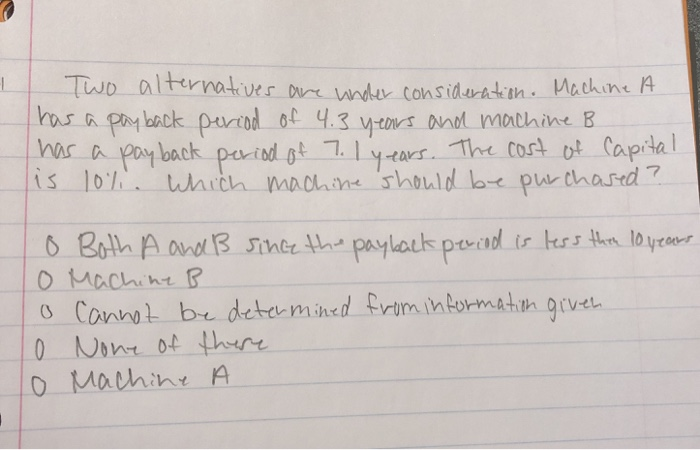 Two alternatives are under consideration. Machine A
has a payback period of 4.3 years and machine B
has a payback period of 7.1 years. The cost of Capital
is 10%. Which machine should be purchased?
O Both A and B since the payback period is less than 10 years
O Machine B
O Cannot be determined from information given
O None of these
O Machine A